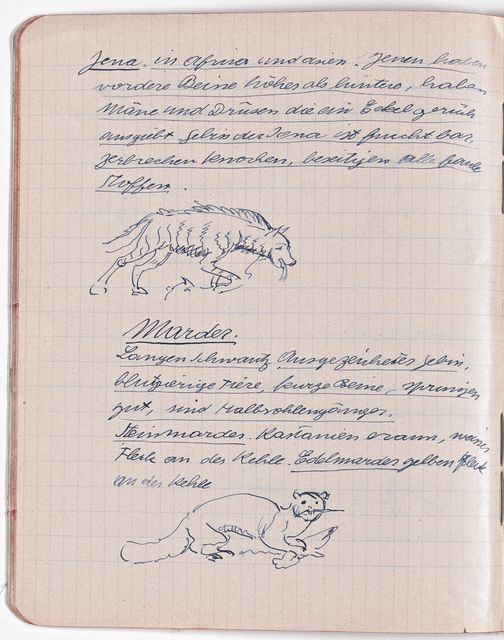 Jena. in Afrika und Asien. Jenen haben
vordere Beine höher als hintere, haben
Mäne und Drüsen die ein Eckel geruch
ausgiebt Gebis der Jena ist frucht bar,
zerbrechen Knochen, beseitigen alle faule
Stoffen.
Marder.
Langen Schwantz Ausgezeichetes Gebis,
blutgierige Tiere, kurze Beine, springen
gut, sind Halbsohlengänger.
Steinmarder. Kastanien braun, weiser
Fleck an der Kehle. Edelmarder gelben Fleck
an der Kehle